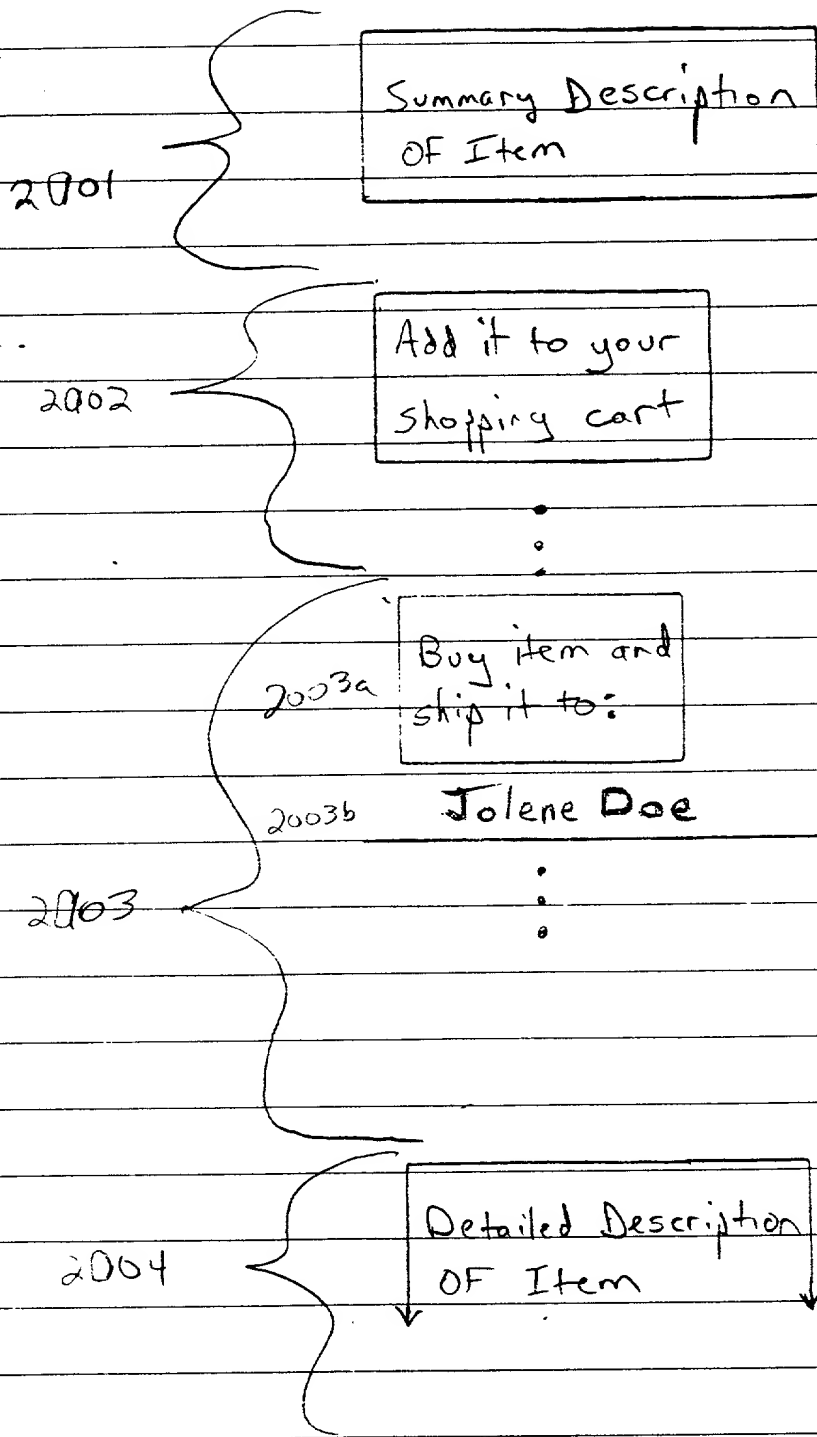 Summary Description
OF Item
2001
Add it to your
shopping cart
2002
Buy item and
2003a
ship it to:
2003b Jolene Doe
2003
Detailed Description
2004
OF Item